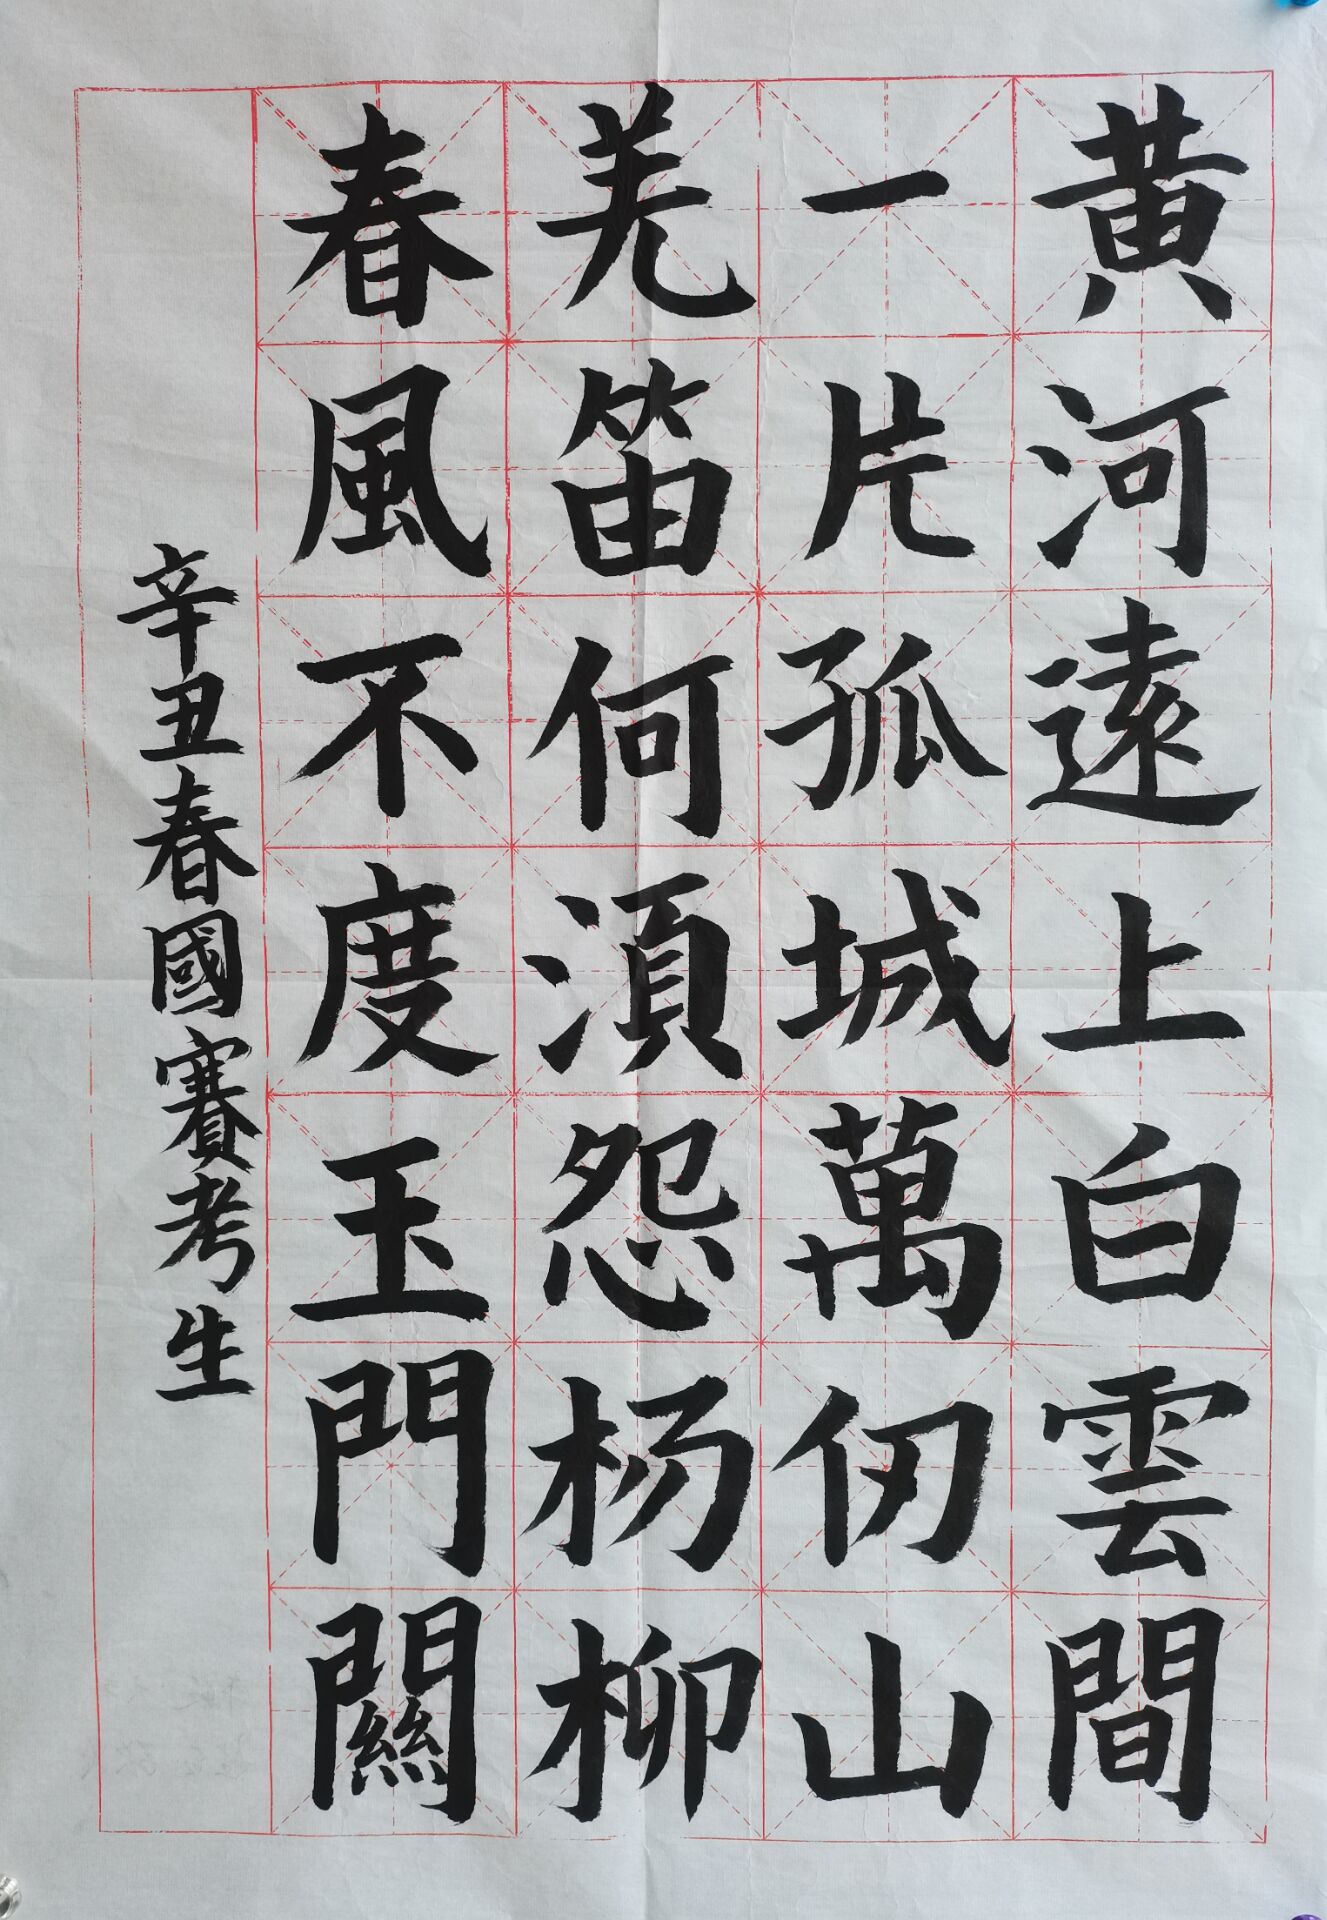 黄河遠上白雲間
一片孤城萬仞山
羌笛何湏怨杨柳
春風不度玉門關
辛丑春國賽考生